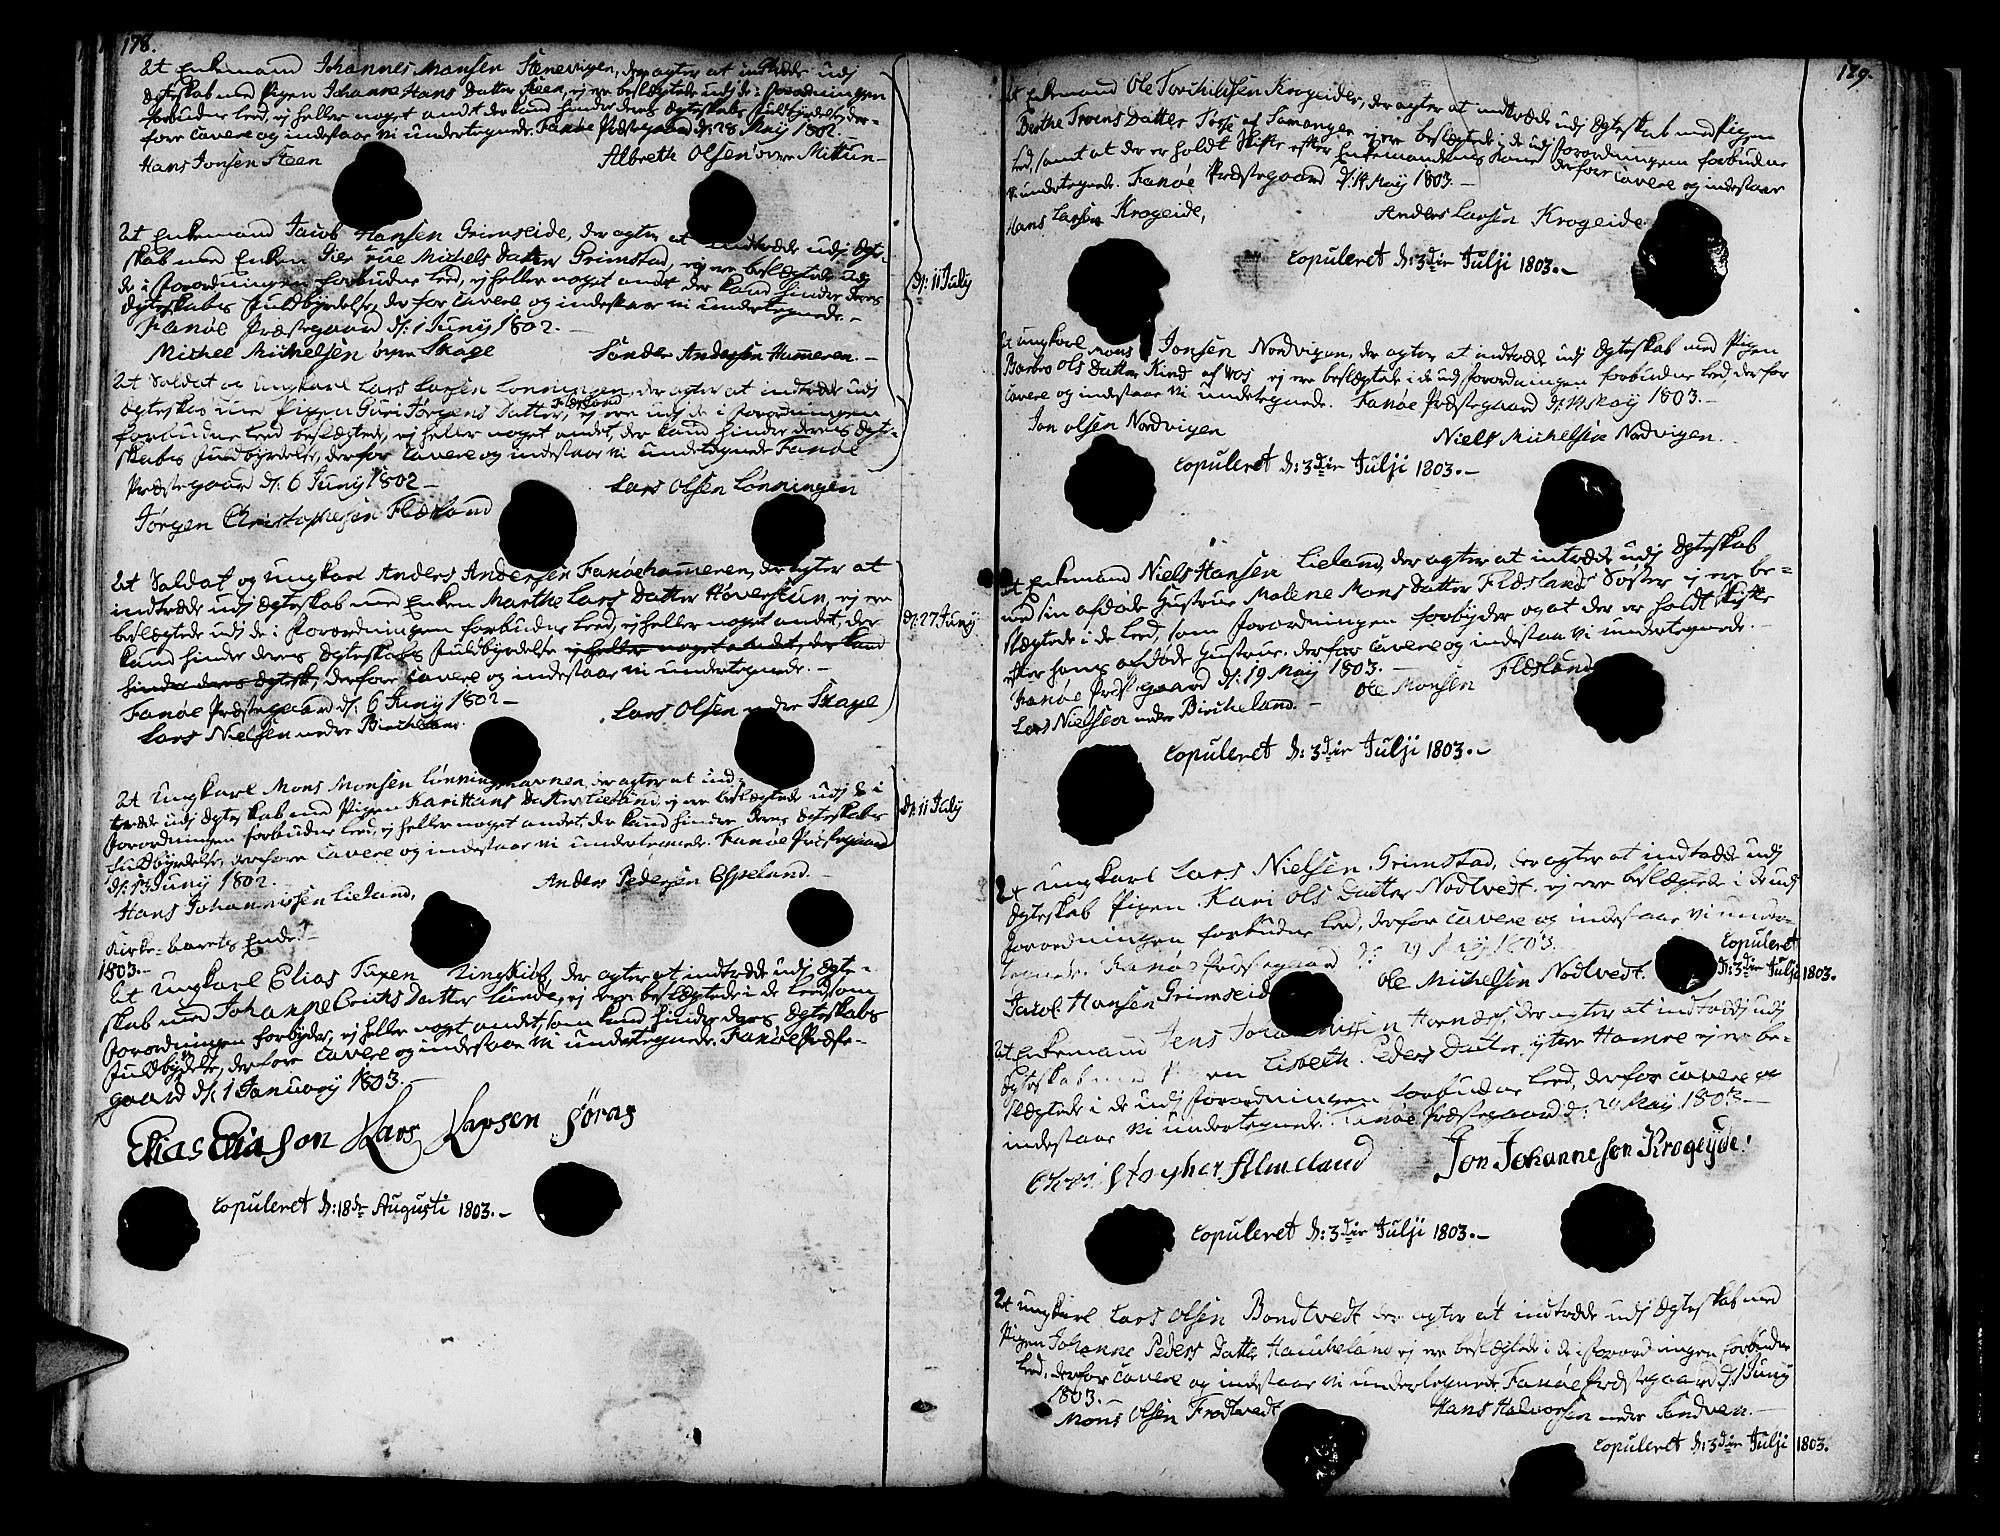 178.
At Enkemand Johannes Monsen Stenevigen, der agter at indtræde udj
Ægteskab med Pigen Johanne Hans Datter Steen, ej ere beslægtede udj de i Forordningen
forbudne Leed, ej heller noget andet der kand hindre deres Ægteskabs Fuldbyrdelse, der-
fore Cavere og indestaar vi undertegnede. Fanøe Præstegaard d: 28 Maij 1802.-
Hans Jonsen Steen Albreth Olsen øvre Mittun-
At Enkemand Jacob Hansen Grimseide, der agter at indtræde udj Ægte-
skab med Enken Michels Datter Grimstad, ej ere beslægtede udj
de i Forordningen forbudne Leed, ej heller noget andt der kand hindre deres
Ægteskabs Fuldbyrdelse, der for Cavere og indestaar vi undertegnede.-
Fanøe Præstegaard d: 1 Junij 1802.-
d: 11 July
Michel Michelsen øvre Skage Sander Andersen Hammeren.-
At Soldat og Ungkarl Lars Larsen Lønningen, der agter at indtræde udj
Ægteskab med Pigen Guri Jørgens Datter Flæsland, ej ere udj de i Forordningen
forbudne Leed beslægtede, ej heller noget andet, der kand hindre deres Ægte-
skabs Fuldbyrdelse, derfor Cavere og indestaar vi undertegnede Fanøe
Præstegaard d: 6 Junij 1802-
Lars Olsen Lønningen
Jørgen Christophersen Flæsland
At Soldat og Ungkarl Anders Andersen Fanøehammeren, der agter at
indtræde udj Ægteskab med Enken Marthe Lars Datter Høverstun, ej ere
beslægtede udj de i Forordningen forbudne Leed, ej heller noget andet, der
kand hindre deres Ægteskabs Fuldbyrdelse ej heller noget andet, der kand
hindre deres Ægtesk, derfore Cavere og indestaar vi undertegnede.-
Fanøe Præstegaard d: 6 Junij 1802-
d: 27 Junij
Lars Nielsen nedre Bircheland. Lars Olsen nedre Skage
At Ungkarl Mons Monsen Lønningshavnen, der agter at ind-
træde udj Ægteskab med Pigen Kari Hans Datter Lieland, ej ere beslægtede udj de i
Forordningen forbudne Leed, ej heller noget andet, der kand hindre deres Ægteskabs
Fuldbyrdelse, derfore Cavere og indestaar vi undertegnede. Fanøe Præstegaard
d: 13 Junij 1802.
d: 11 July
Hans Johannissen Lieland, Anders Pedersen Espeland.-
Kirke-Aarets Ende.-
1803.-
At Ungkarl Elias , der agter at indtræde udj Ægte-
skab med Johanne Erichs Datter Lunde, ej ere beslægtede i de Leed, som
Forordningen forbyder, ej heller noget andet, som kand hindre deres Ægteskabs
Fuldbyrdelse, derfore Cavere og indestaar vi undertegnede. Fanøe Præste-
gaard d: 1 Januarij 1803.-
Elias Eliason Lars Larsen Søraas
Copuleret d: 18de Augusti 1803.-
179.
At Enkemand Ole Torchildsen Krogeide, der agter at indtræde udj Ægteskab med Pigen
Berthe Troens Datter Tøsse af Samanger, ej ere beslægtede i de udj Forordningen forbudne
Leed, samt at der er holdt Skifte efter Enkemandens Kone derfore Cavere og indestaar
vi undertegnede. Fanøe Præstegaard d: 14 Maij 1803.-
Hans Larsen Krogeide, Anders Larsen Krogeide
Copuleret d: 3die Julji 1803.-
At Ungkarl Mons Jonsen Nordvigen, der agter at indtræde udj Ægteskab med Pigen
Barbro Ols Datter Kind af Vos ej ere beslægtede i de udj Forordningen forbudne Leed, derfor
Cavere og indestaar vi undertegnede. Fanøe Præstegaard d: 14 Maij 1803.-
Jon Olsen Nordvigen Niels Michelsen Nordvigen.
Copuleret d: 3die Julji 1803.-
At Enkemand Niels Hansen Lieland, der agter at intræde udj Ægteskab
med sin afdøde Hustrue Malene Mons Datter Flæslands Søster ej ere be-
slægtede i de Leed, som Forordningen forbyder og at der er holdt Skifte
efter hans afdøde Hustrue. derfor Cavere og indestaa vi undertegnede.-
Fanøe Præstegaard d: 19 Maij 1803.-
Ole Monsen Flæsland
Lars Nielsen nedre Bircheland.-
Copuleret d: 3die Julji 1803.-
At Ungkarl Lars Nielsen Grimstad, der agter at indtræde udj
Ægteskab Pigen Kari Ols Datter Nødtvedt. ej ere beslægtede i de udj
Forordningen forbudne Leed, derfor Cavere og indestaar vi under-
tegnede. Fanøe Præstegaard d: 29 Maij 1803.
Jacob Hansen Grimseid Ole Michelsen Nødtvedt.
Copuleret
d: 3die Julji 1803.
At Enkemand Jens Johannessen , der agter at indtræde udj
Ægteskab med Pigen Lisbeth Peders Datter ytter Hamre ej ere be-
slægtede i de udj Forordningen forbudne Leed, derfor Cavere og
indestaar vi undertegnede. Fanøe Præstegaard d: 29 Maij 1803.-
Christopher Almeland Jon Johanneson Krogeyde:
Copuleret d: 3die Julji 1803.-
At Ungkarl Lars Olsen Bondtvedt der agter at indtræde udj Ægteskab med
Pigen Johanne Peders Datter Haucheland ej ere beslægtede i de i Forordningen forbudne
Leed, derfor Cavere og indestaar vi undertegnede. Fanøe Præstegaard d: 1 Junij
1803.-
Mons Olsen Trodtvedt Hans Halvorsen nedre Sandven.-
Copuleret d: 3die Julji 1803.